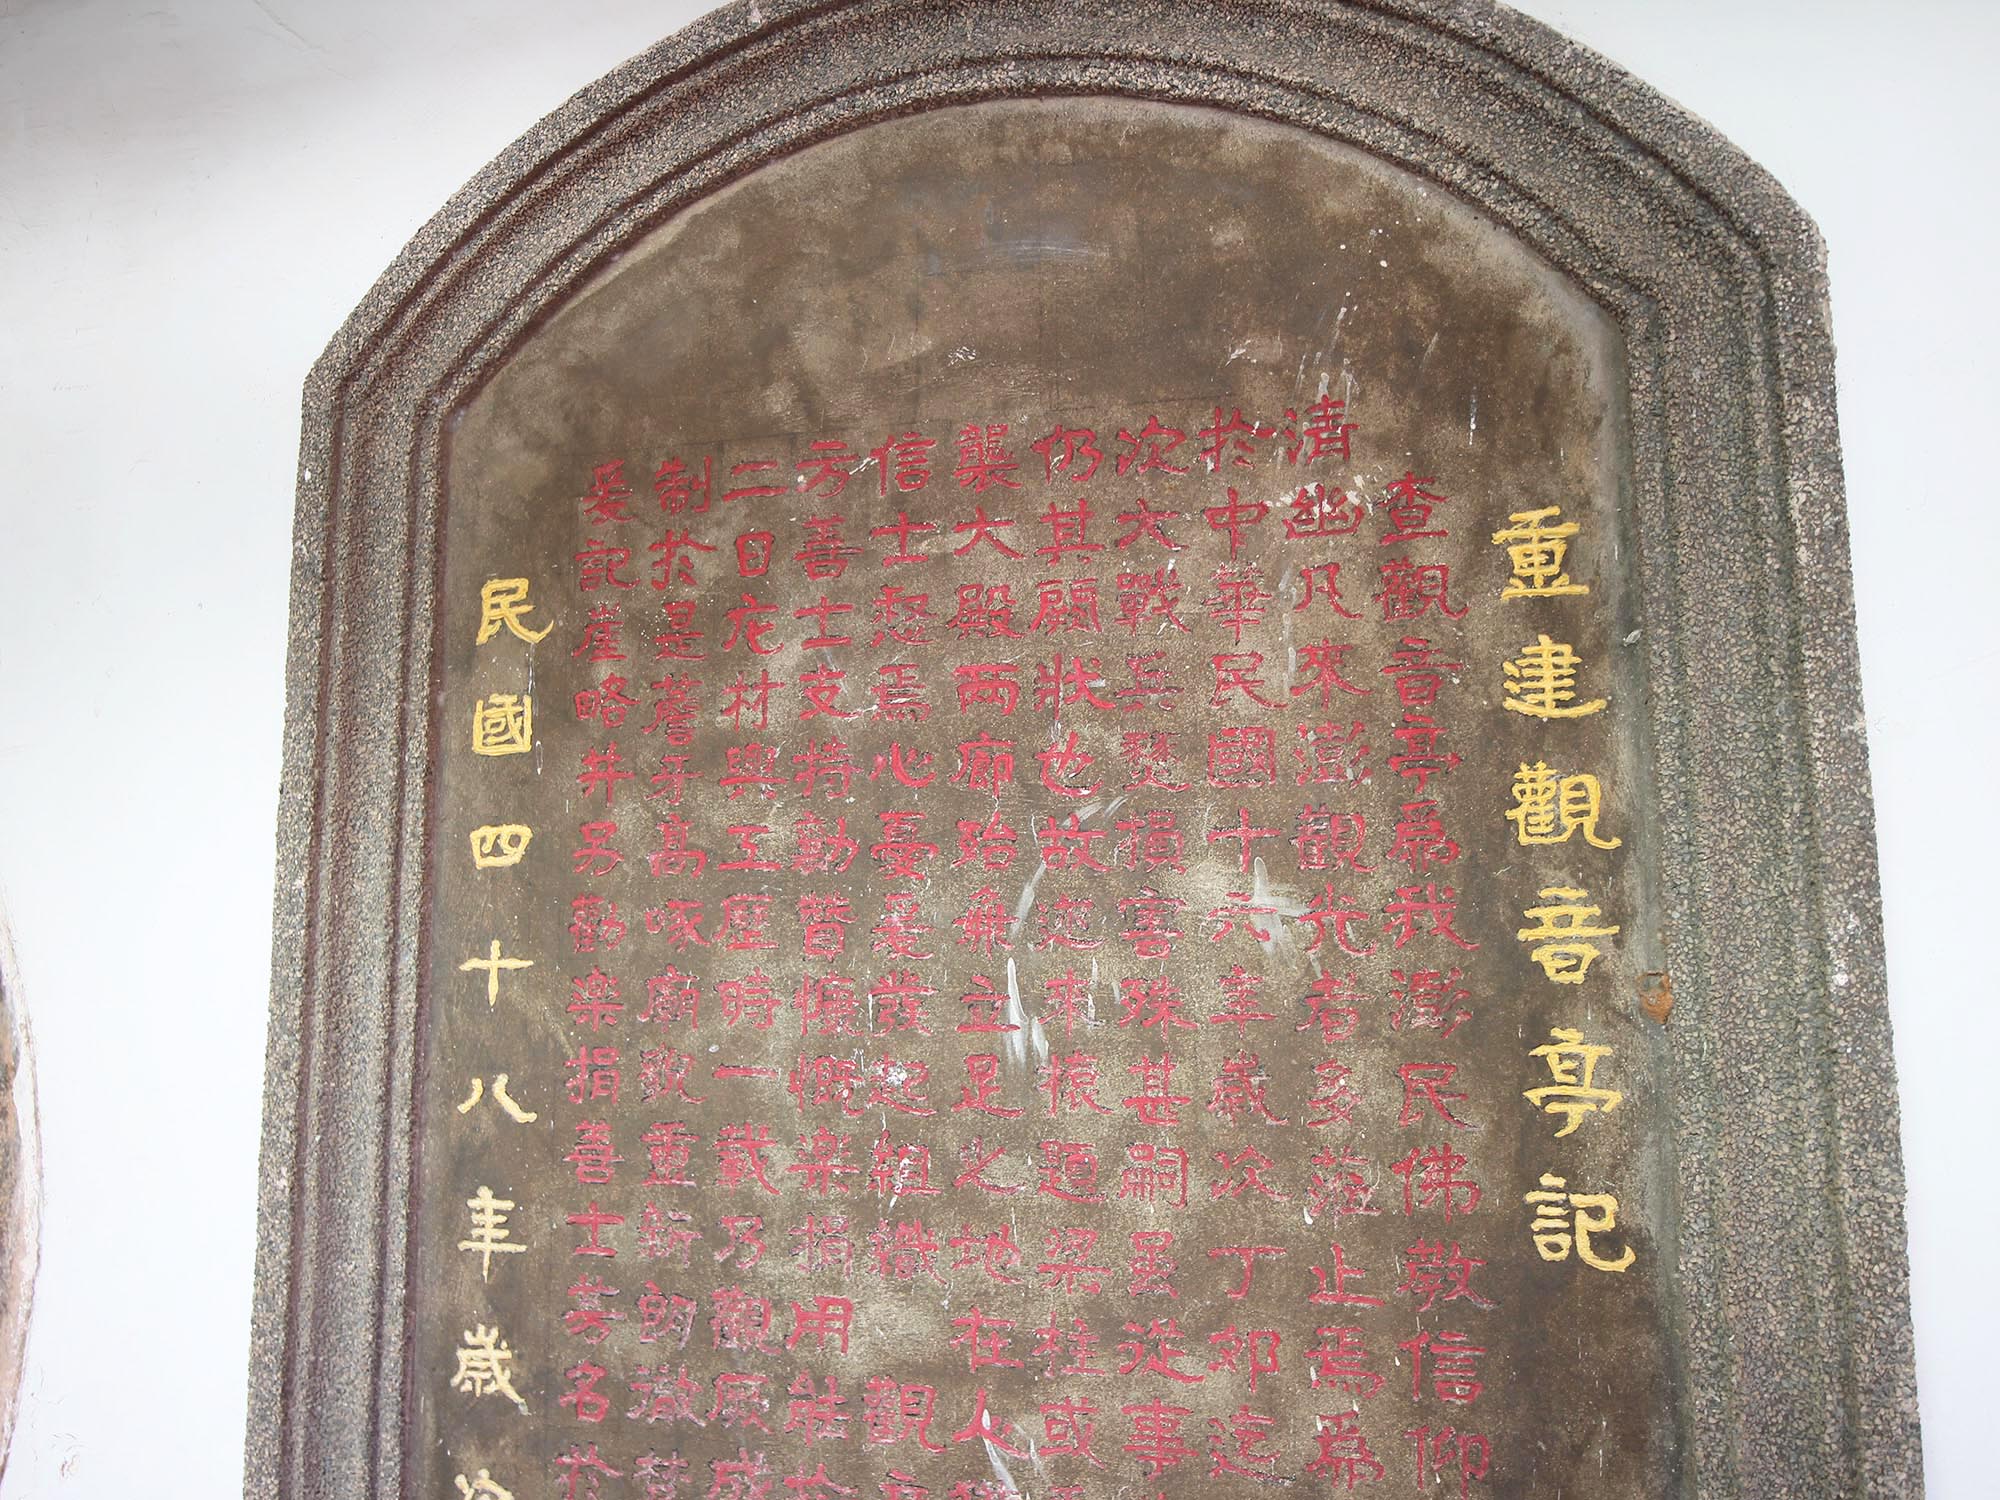 重建觀音亭記
查觀音亭為我澎民佛教信仰
清幽凡來澎觀光者多蒞止焉為
於中華民國十六年歲次丁卯迄
次大戰兵燹損害殊甚嗣虽從事
仍其顧狀也故邇來榱題梁柱或
襲大殿兩廊殆無立足之地在人
信士惄焉心憂爰發起組織 觀
方善士支持勷贊慷慨樂捐用能於
二日庀材興工歷時一載乃觀厥成
制於是簷牙高啄廟貌重新朗徹
爰記崖略并另勸樂捐善士芳名於
民國四十八年歲次